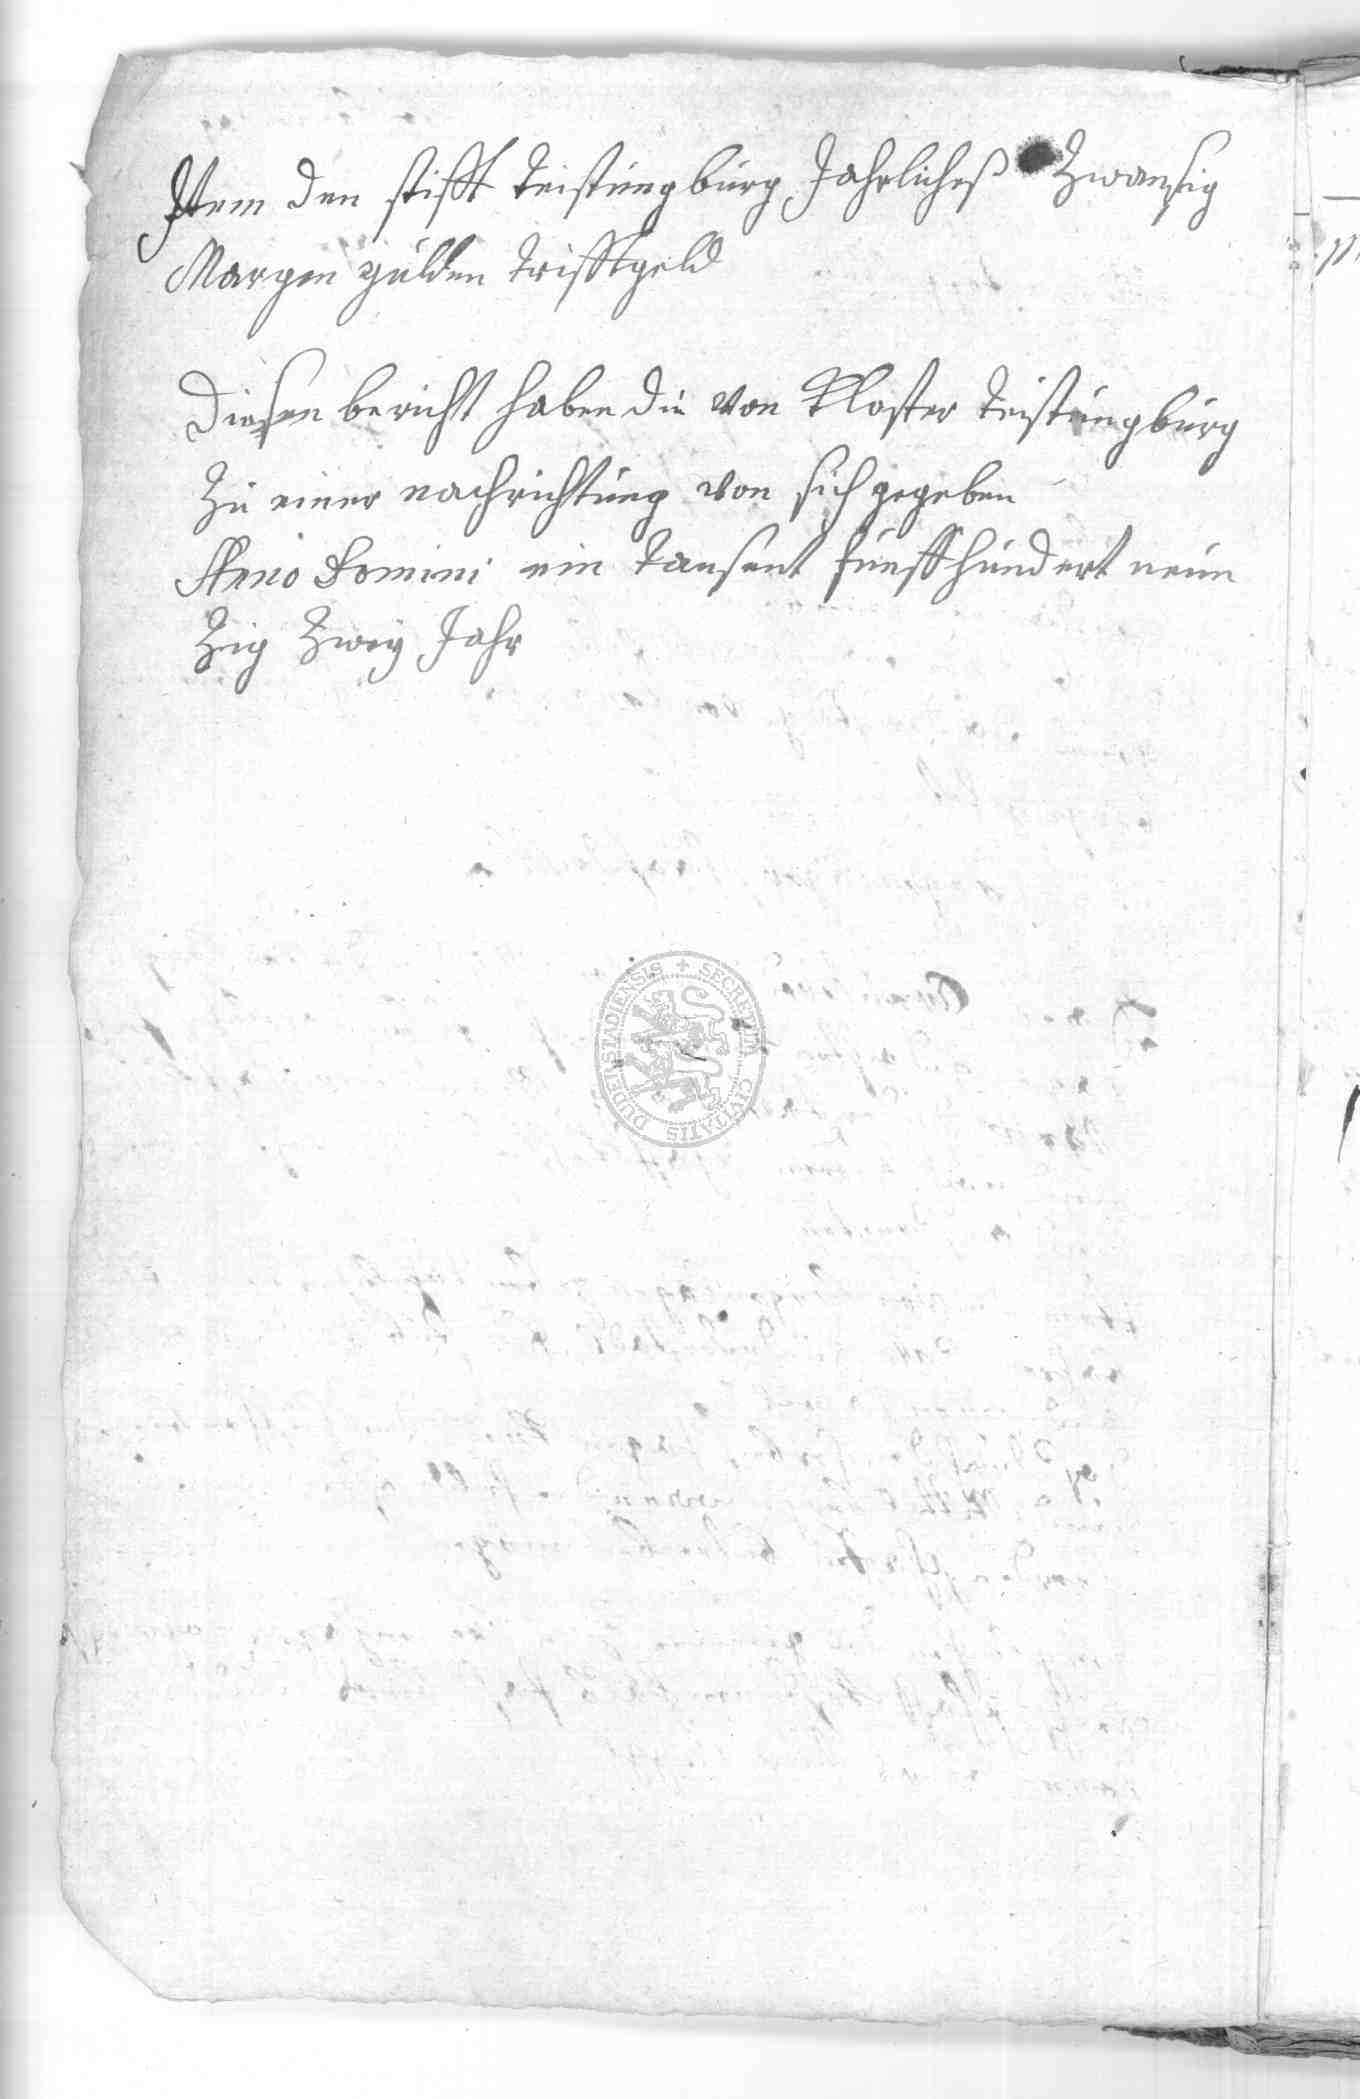 Item den stifft Teistungburg Jahrliches zwansig
Margen gulden trifftgeld
Diesen bericht haben die von Kloster Teistungburg
zu einer nachrichtung von sich gegeben
Anno Domini ein tausent funffhundert neun
zig zweij Jahr
SECRETUM CIVITATIS DUDERSTADIENSIS